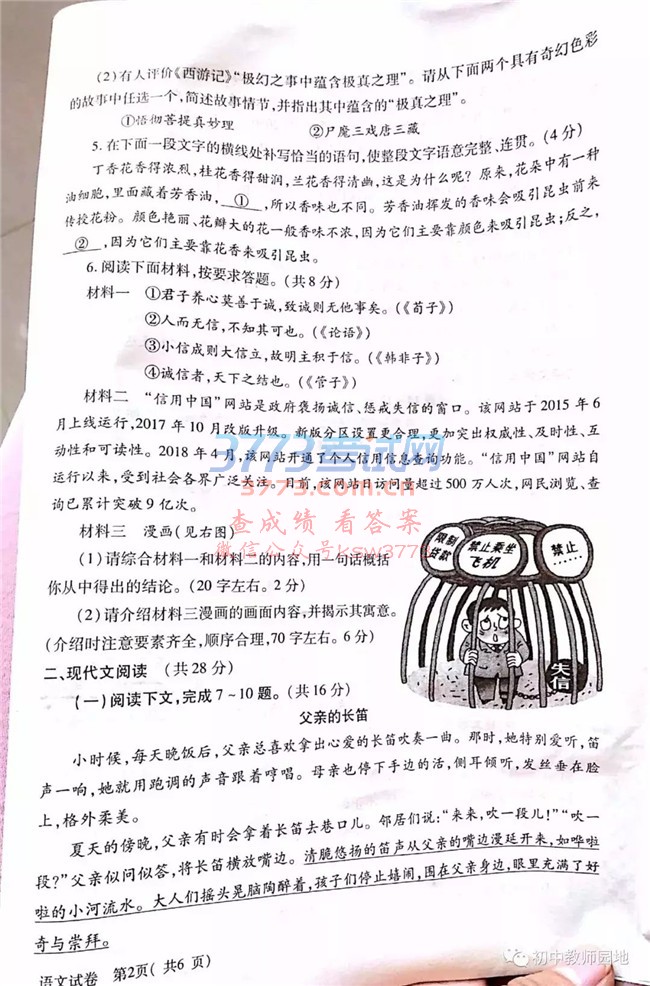 (2)有人评价《西游记》“极幻之事中蕴含极真之理”。请从下面两个具有奇幻色彩
的故事中任选一个,简述故事情节,并指出其中蕴含的“极真之理”。
①悟彻菩提真妙理 ②尸魔三戏唐三藏
5.在下面一段文字的横线处补写恰当的语句,使整段文字语意完整、连贯。(4分)
丁香花香得浓烈,桂花香得甜润,兰花香得清幽,这是为什么呢?原来,花朵中有一种
油细胞,里面藏着芳香油,①,所以香味也不同。芳香油挥发的香味会吸引昆虫前来
传授花粉。颜色艳丽、花瓣大的花一般香味不浓,因为它们主要靠颜色来吸引昆虫;反之,
②,因为它们主要靠花香来吸引昆虫。
6.阅读下面材料,按要求答题。(共8分)
材料一 ①君子养心莫善于诚,致诚则无他事矣。(《荀子》)
②人而无信,不知其可也。(《论语》)
③小信成则大信立,故明主积于信。(《韩非子》)
④诚信者,天下之结也。(《管子》)
材料二 “信用中国”网站是政府褒扬诚信、惩戒失信的窗口。该网站于2015年6
月上线运行,2017年10月改版升级。新版分区设置更合理,更加突出权威性、及时性、互
动性和可读性。2018年4月,该网站开通了个人信用信息查询功能。“信用中国”网站自
运行以来,受到社会各界广泛关注。目前,该网站日访问量超过500万人次,网民浏览、查
询已累计突破9亿次。
3773考试网
3773.com.cn
查成绩 看答案
微信公众号ksw377
材料三 漫画(见右图)
(1)请综合材料一和材料二的内容,用一句话概括
你从中得出的结论。(20字左右。2分)
(2)请介绍材料三漫画的画面内容,并揭示其寓意。
(介绍时注意要素齐全,顺序合理,70字左右。6分)
限制
贷款
禁止乘坐
飞机
禁止
……
失信
二、现代文阅读 (共28分)
(一)阅读下文,完成7~10题。(共16分)
父亲的长笛
小时候,每天晚饭后,父亲总喜欢拿出心爱的长笛吹奏一曲。那时,她特别爱听,笛
声一响,她就用跑调的声音跟着哼唱。母亲也停下手边的活,侧耳倾听,发丝垂在脸
上,格外柔美。
夏天的傍晚,父亲有时会拿着长笛去巷口儿。邻居们说:“来来,吹一段儿!”“吹一
段?”父亲似问似答,将长笛横放嘴边。清脆悠扬的笛声从父亲的嘴边漫延开来,如哗啦
啦的小河流水。大人们摇头晃脑陶醉着,孩子们停止嬉闹,围在父亲身边,眼里充满了好
奇与崇拜。
语文试卷 第2页(共6页)
初中教师园地